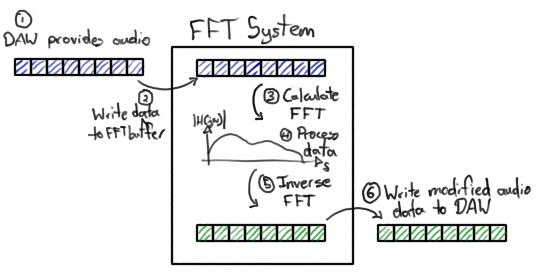 ① DAW provides audio
FFT System
② Write data
to FFT buffer
③ Calculate
FFT
|H(jω)|
④ Process
data
⑤ Inverse
FFT
⑥ Write modified audio
data to DAW